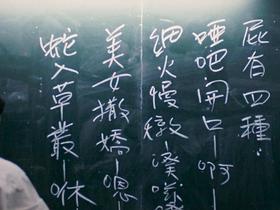 屁有四種:
啞吧開口-啊
細火慢燉-
美女撒嬌-嗯
蛇入草叢-咻